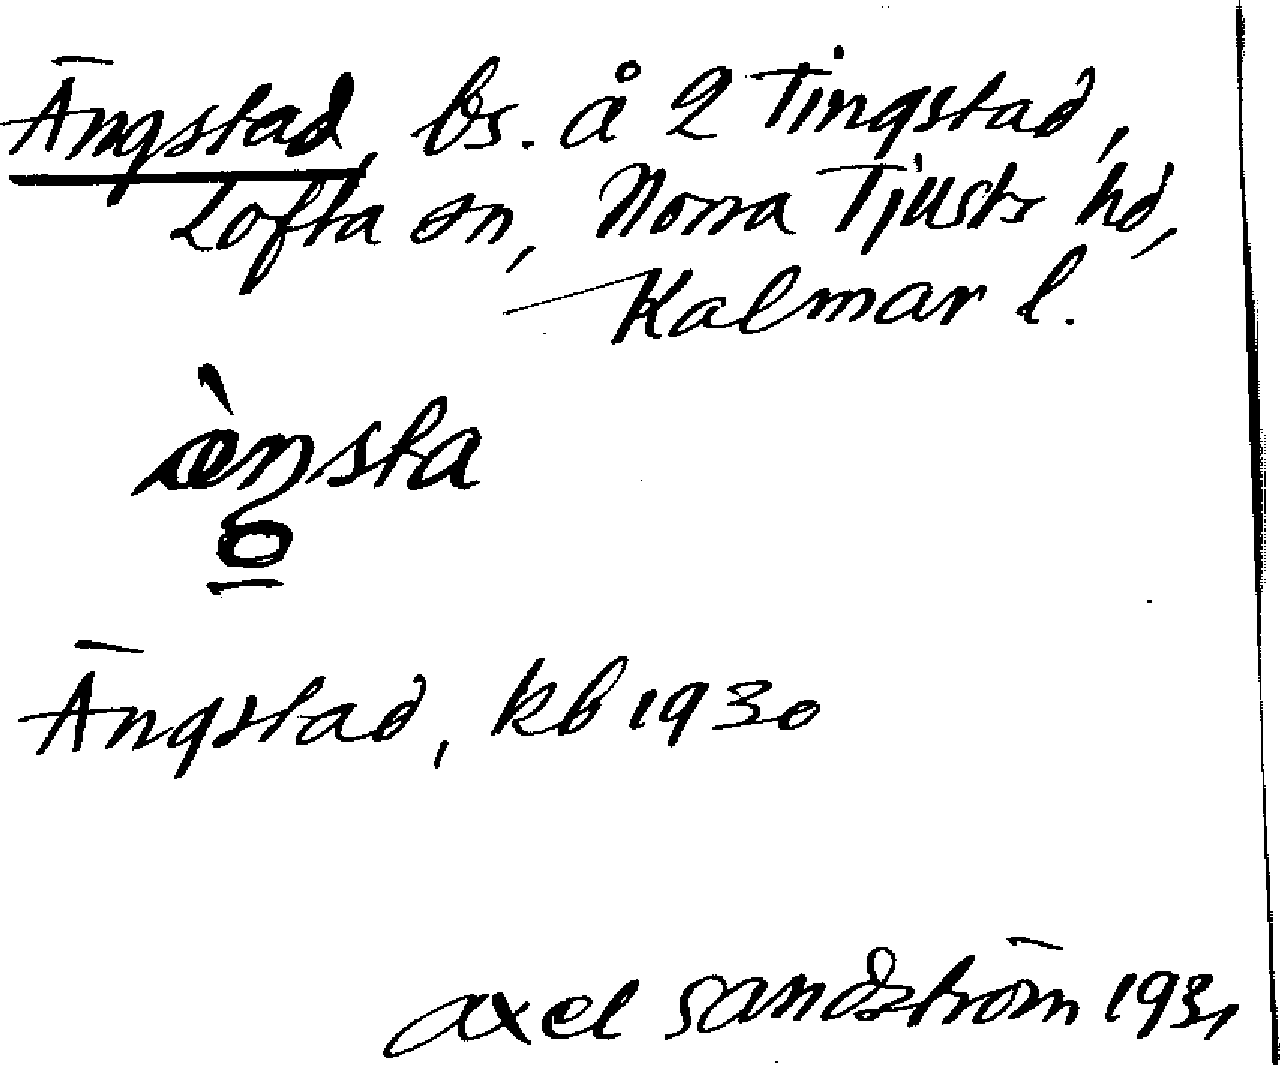 Ängstad, bs. å 2 Tingstad,
Lofta sn, Norra Tjusts hd,
Kalmar l.
æ̀ŋsta
Ängstad, kb 1930
Axel Sandström 1931